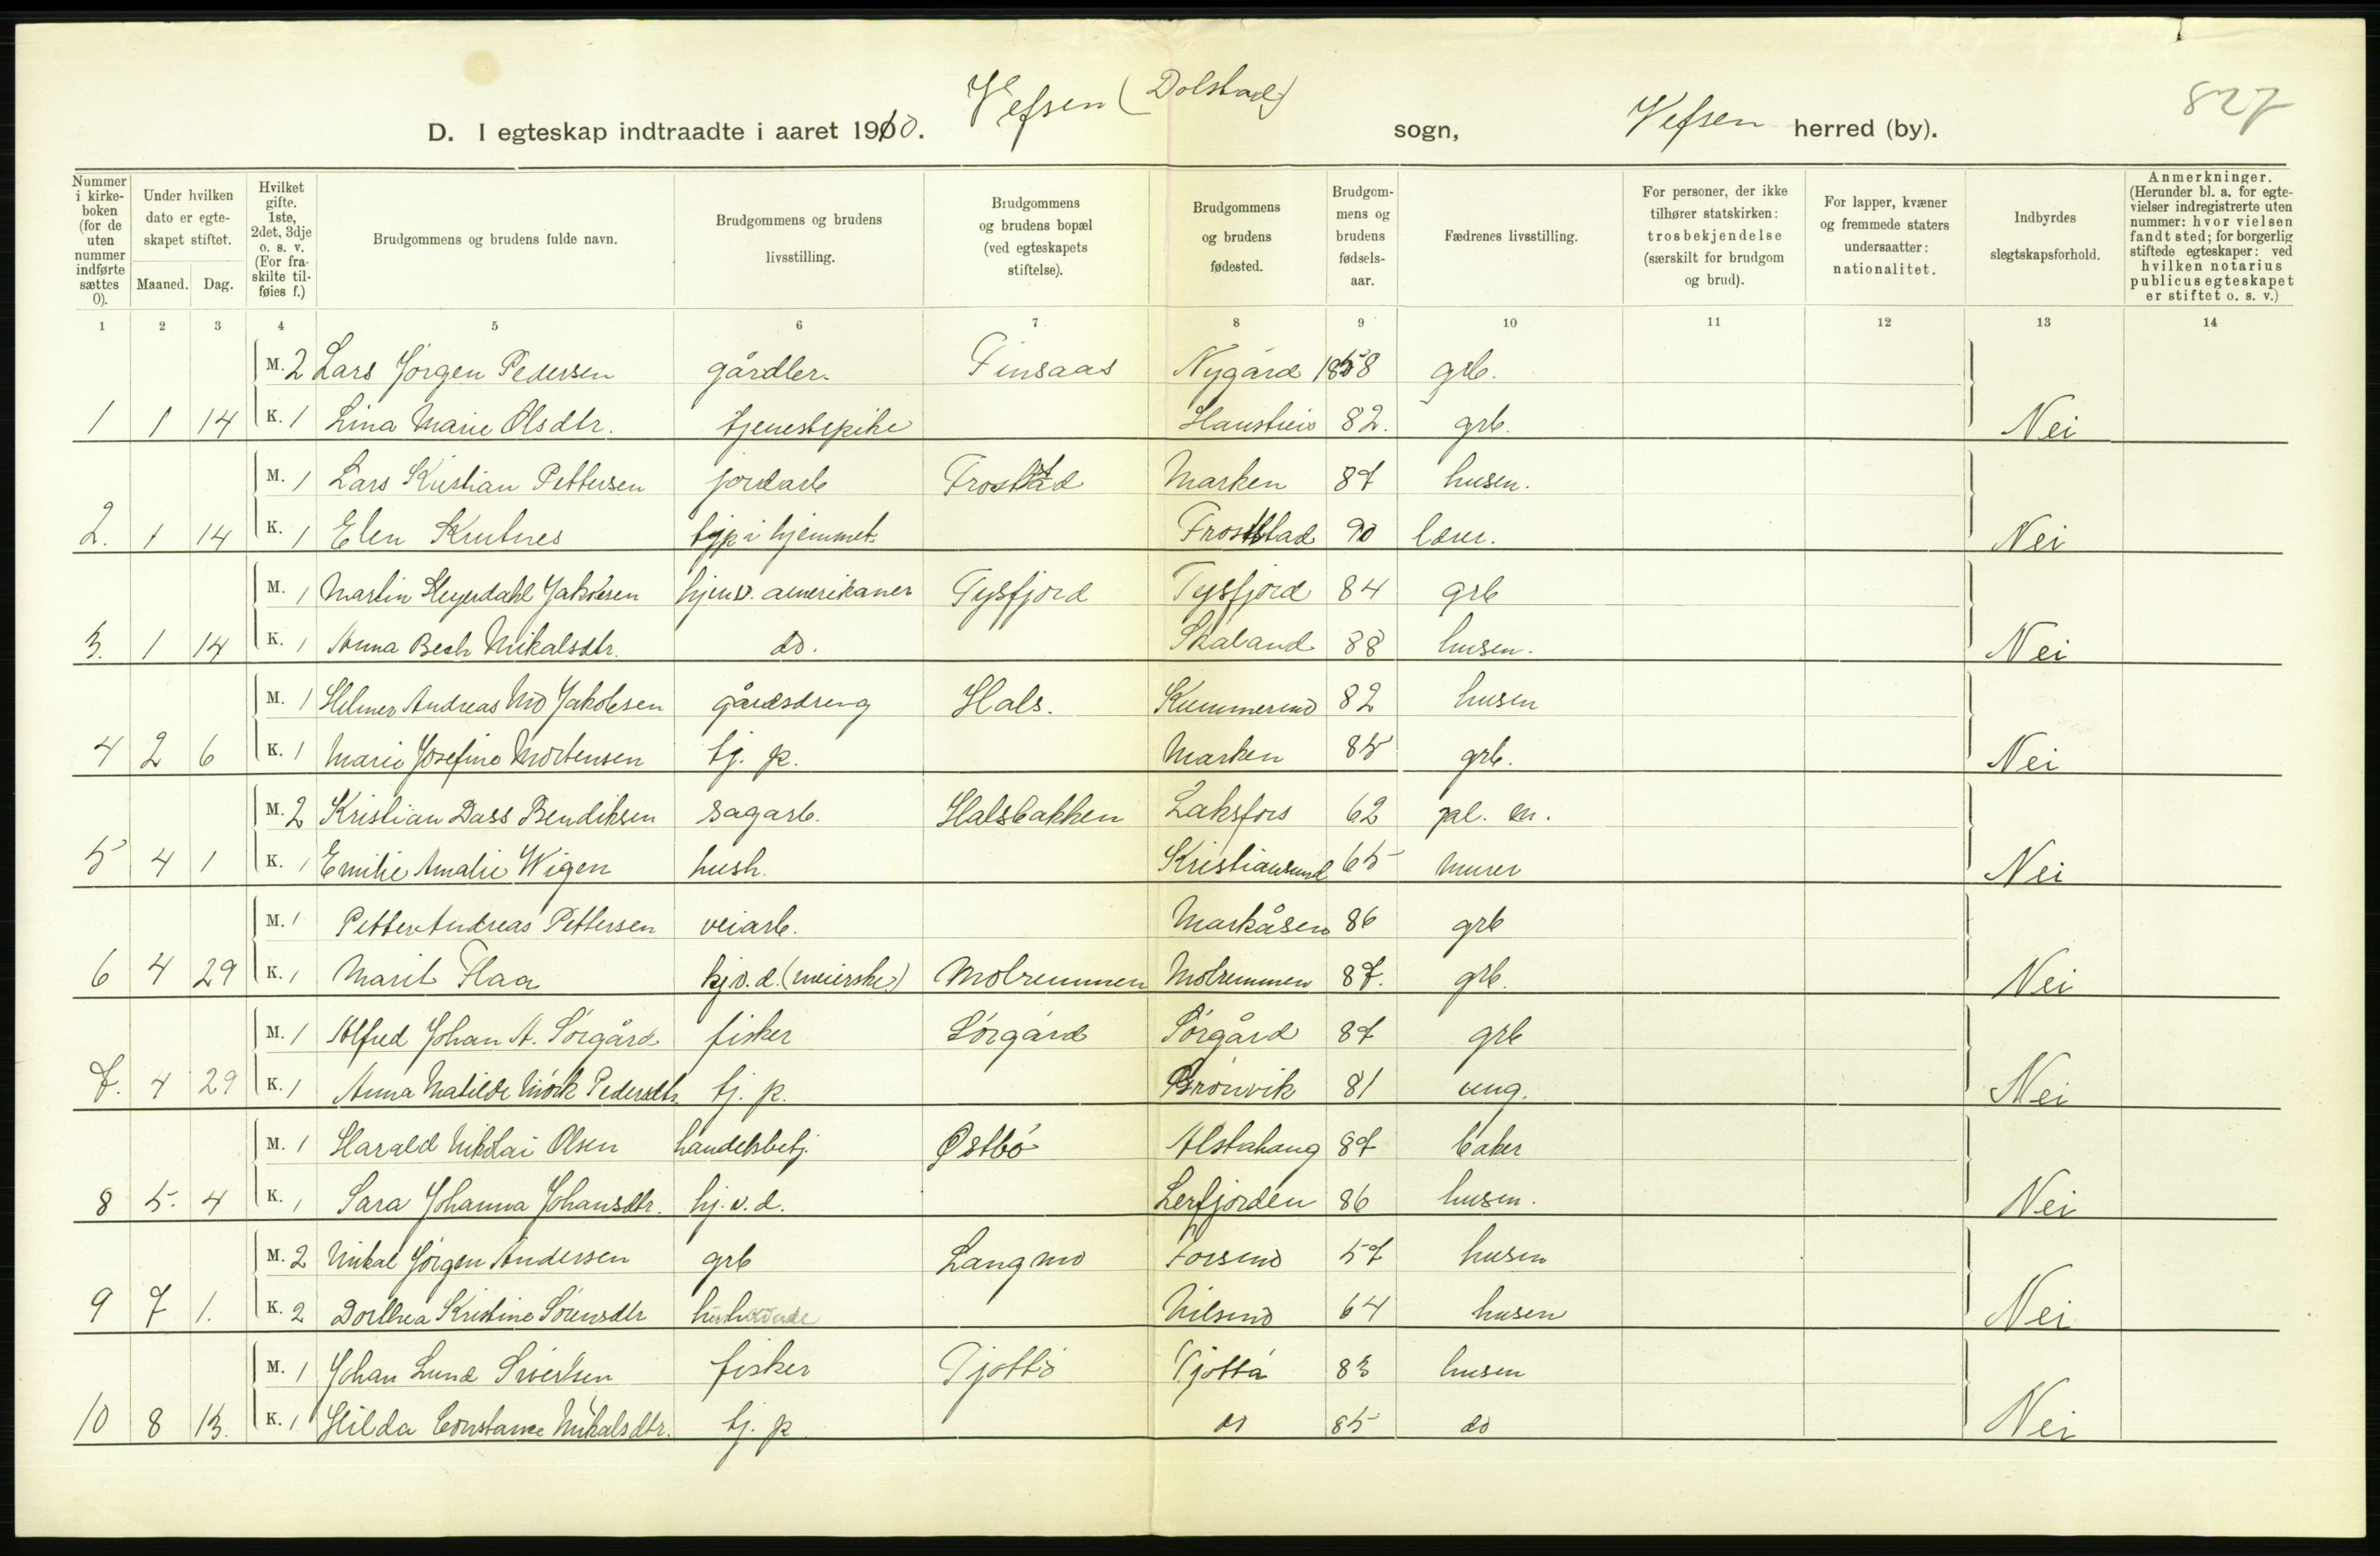 827
D. I egteskap indtraadte i aaret 1910. Vefsen (Dolstad) sogn, Vefsen herred (by).
Nummer i kirkeboken (for de uten nummer indførte sættes 0).
Under hvilken dato er egteskapet stiftet.
Maaned. Dag.
Hvilket gifte. 1ste, 2det, 3dje o. s. v. (For fraskilte tilføies f.)
Brudgommens og brudens fulde navn.
Brudgommens og brudens livsstilling.
Brudgommens og brudens bopæl (ved egteskapets stiftelse).
Brudgommens og brudens fødested.
Brudgommens og brudens fødselsaar.
Fædrenes livsstilling.
For personer, der ikke tilhører statskirken: trosbekjendelse (særskilt for brudgom og brud).
For lapper, kvæner og fremmede staters undersaatter: nationalitet.
Indbyrdes slegtskapsforhold.
Anmerkninger. (Herunder bl. a. for egtevielser indregistrerte uten nummer: hvor vielsen fandt sted; for borgerlig stiftede egteskaper: ved hvilken notarius publicus egteskapet er stiftet o. s. v.)
1 2 3 4 5 6 7 8 9 10 11 12 13 14
M. 2 Lars Jörgen Pedersen gårdbr. Finsaas Nygård 1858 grb.
1 1 14 K. 1 Lina Marie Olsdtr. tjenestepike 82. grb. Nei
M. 1 Lars Kristian Pettersen jordarb Marken 87 husm.
2. 1 14 K. 1 Elen Krutnes hjemmet 90 lærer. Nei
M. 1 Martin Heyerdahl Jakobsen hjemv. amerikaner Tysfjord Tysfjord 84 grb
3. 1 14 K. 1 Anna Bech Mikalsdtr. do. Skaland 88 husm. Nei
M. 1 Hilmer Andreas Mo Jakobsen gårdsdreng Hals. Kummermo 82 husm
4 2 6 K. 1 Marie Josefine Mortensen tj. p. Marken 85 grb. Nei
M. 2 Kristian Dass Bendiksen sagarb. Halsbakken Laksfors 62 pl. m.
5 4 1 K. 1 Emilie Amalie Wigen hush. Kristiansund 65 murer Nei
M. 1 Petter Andreas Pettersen veiarb. Markåsen 86 grb
6 4 29 K. 1 Marit Flaa hj. v. d. (meierske) Molremmen Molremmen 87. grb. Nei
M. 1 Alfred Johan A. Sörgård fisker Sörgård Sörgård 87 grb
7. 4 29 K. 1 Anna Matilde Mörk Pedersdtr. tj. p. Grönvik 81 ung. Nei
M. 1 Harald Nikolai Olsen handelsbetj. Østbö Alstahaug 87 baker
8 5. 4 K. 1 Sara Johanna Johansdtr. hj. v. d. Lerfjorden 86 husm. Nei
M. 2 Mikal Jörgen Andersen grb Langmo Forsmo 57 husm
9 7 1. K. 2 Dorthea Kristine Sörensdtr husholderske Nilsmo 64 husm Nei
M. 1 Johan Lund Sivertsen fisker Tjöttö Tjötta 83 husm
10 8 13. K. 1 Hilda Constance Mikalsdtr. tj. p do 85 do Nei